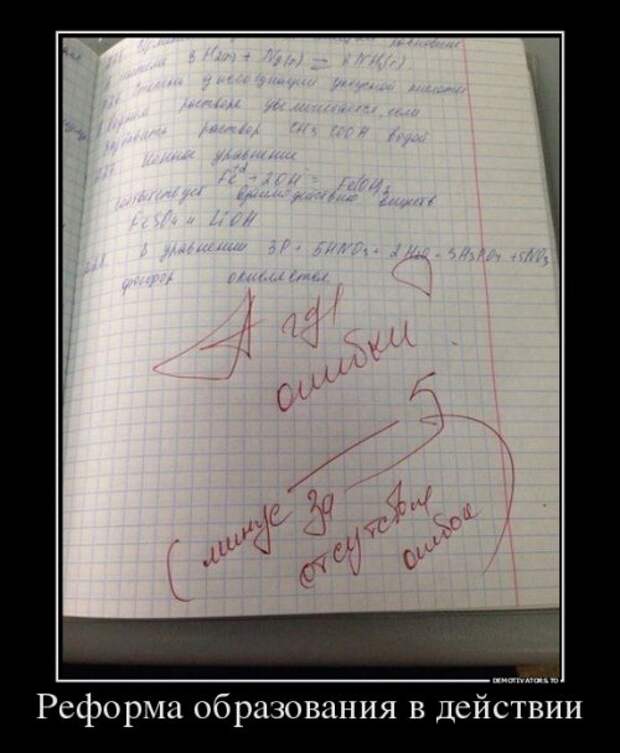 3 H2(г) + N2(г) = 2NH3(г)
диссоциации уксусной кислоты
растворе увеличивается, если
раствор CH3COOH водой
Ионное уравнение
соответствует взаимодействию веществ
FeSO4 и LiOH
В уравнении 3P + 5HNO3 + 2H2O = 3H3PO4 + 5NO
фосфор окисляется
А где
ошибки
5
(минус за
отсутствие
ошибок
DEMOTIVATORS.TO
Реформа образования в действии